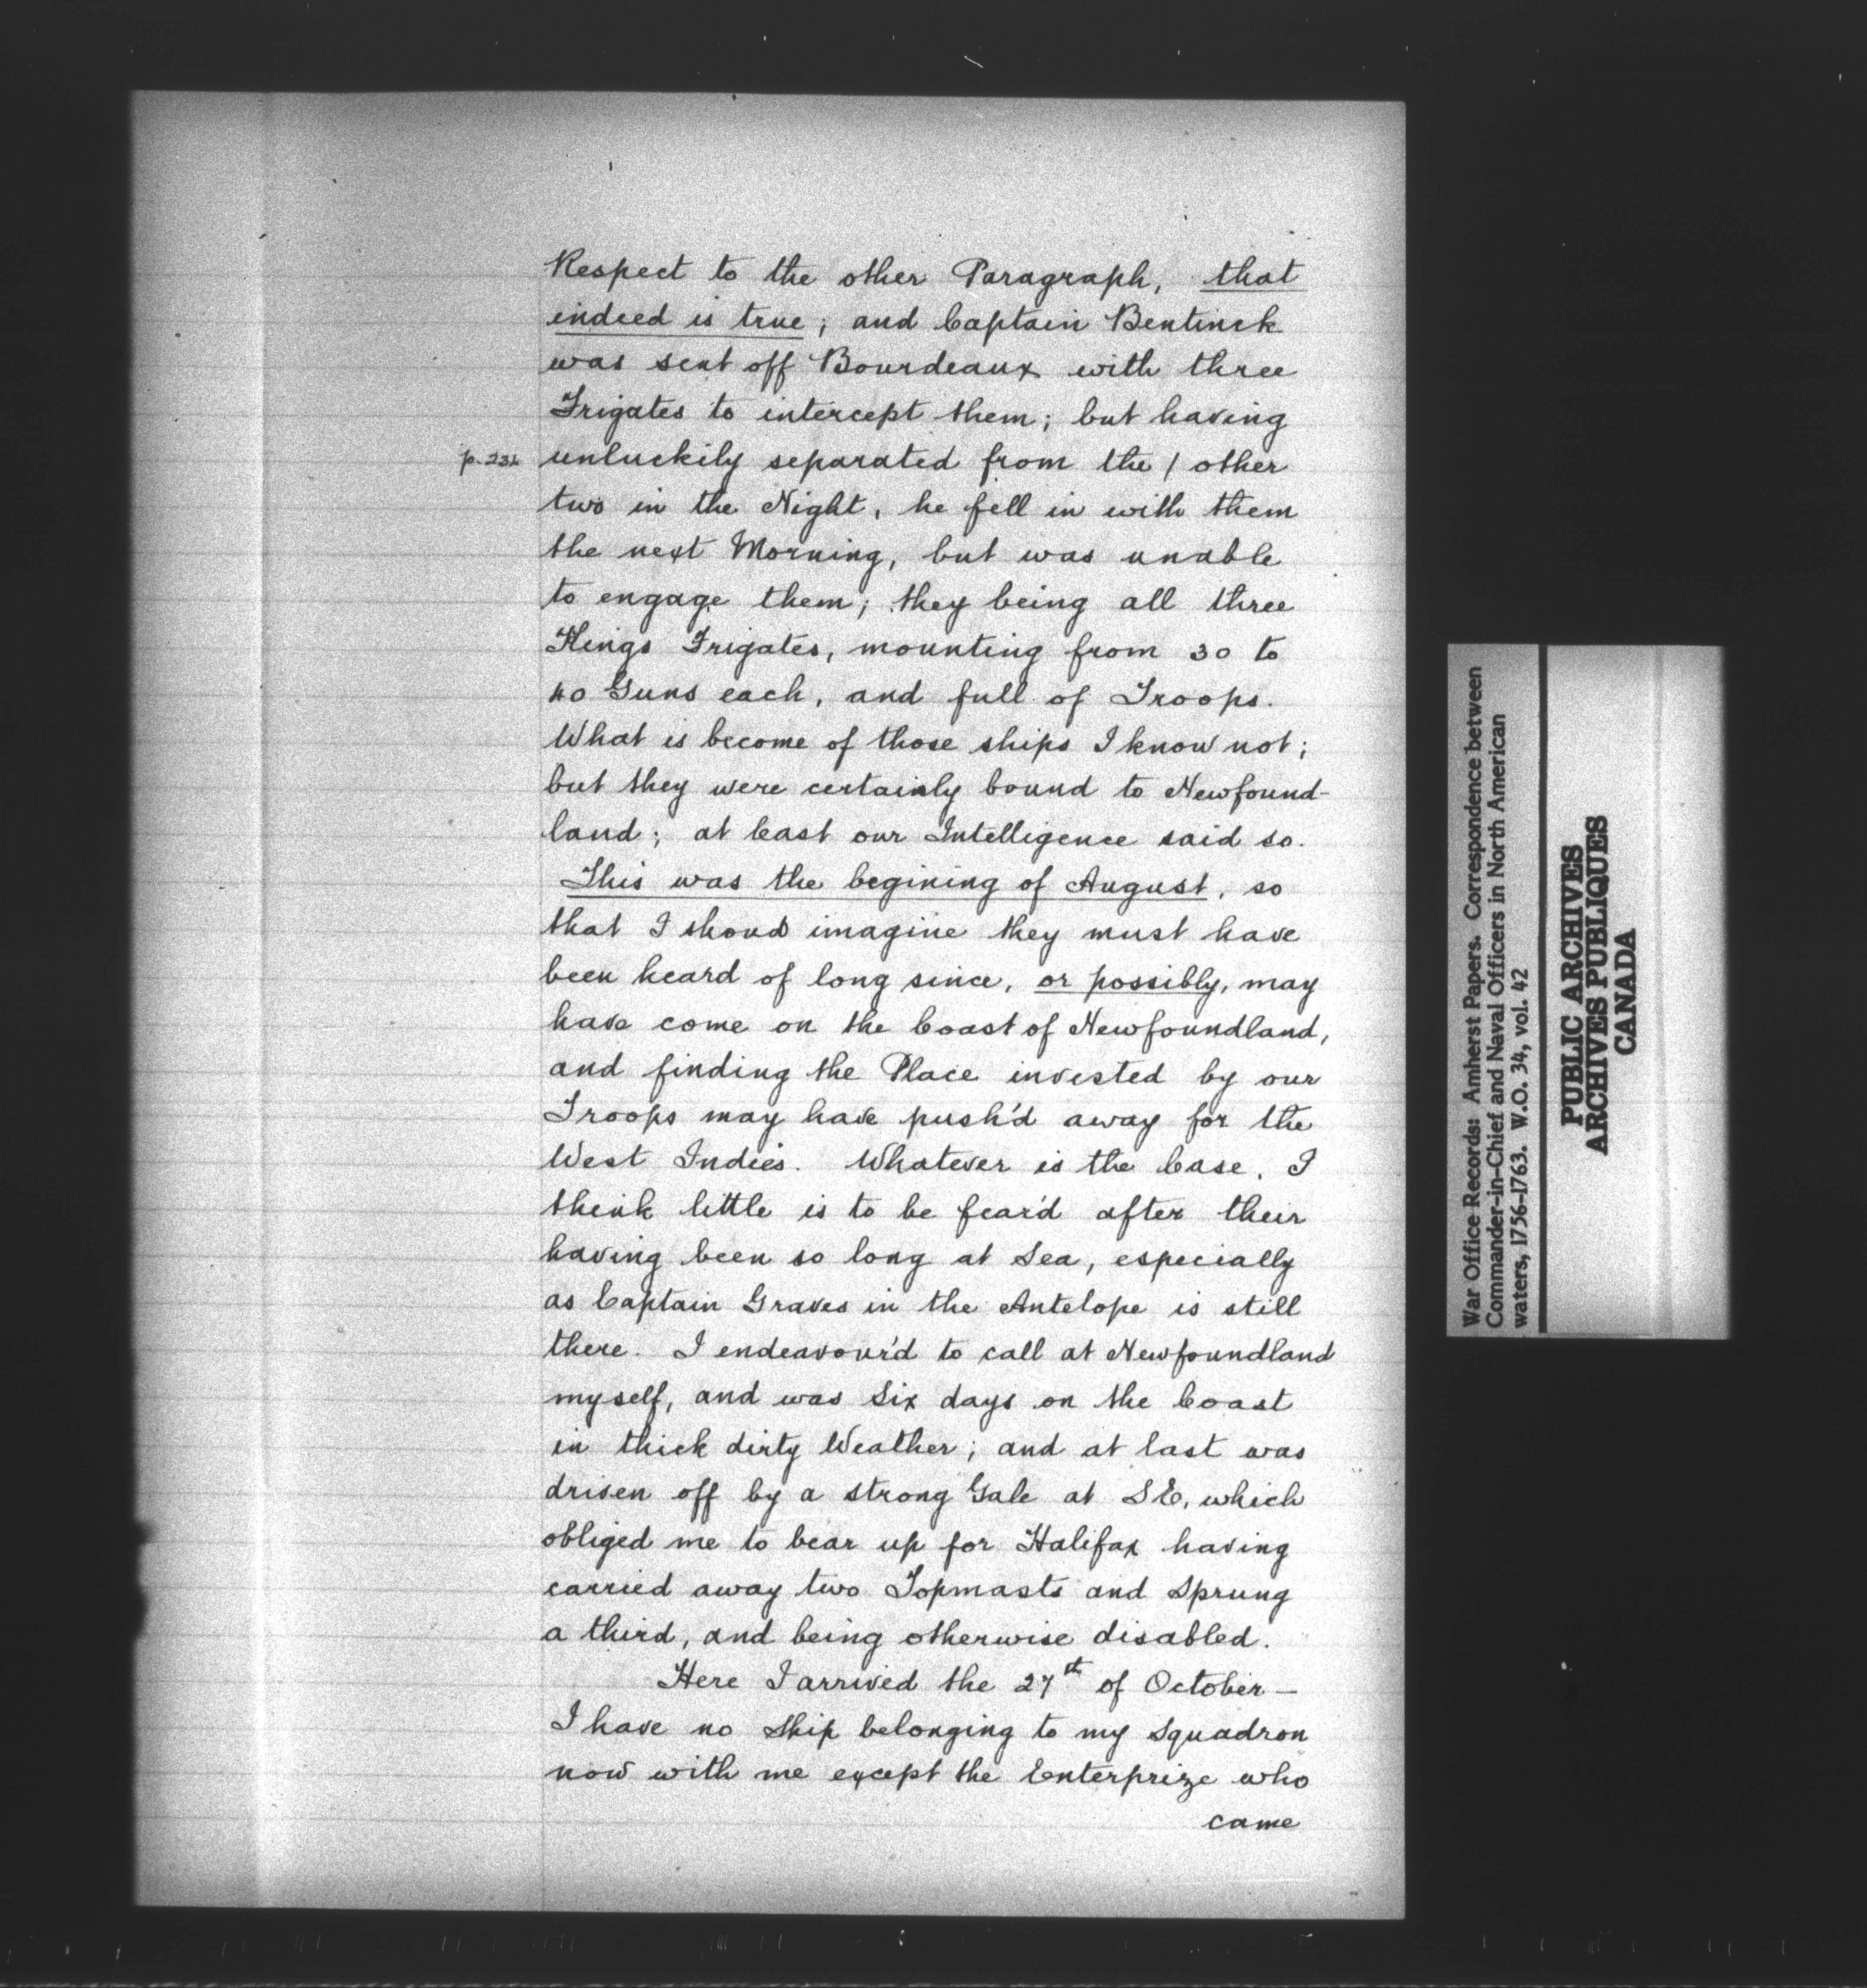 Respect to the other Paragraph, that
indeed is true; and Captain Bentinck
was sent off Bourdeaux with three
Frigates to intercept them; but having
unluckily separated from the / other
two in the Night, he fell in with them
the next Morning, but was unable
to engage them; they being all three
Kings Frigates, mounting from 30 to
40 Guns each, and full of Troops.
What is become of those ships I know not;
but they were certainly bound to Newfound-
land; at least our Intelligence said so.
This was the begining of August, so
that I shoud imagine they must have
been heard of long since, or possibly, may
have come on the Coast of Newfoundland,
and finding the Place invested by our
Troops may have push'd away for the
West Indies. Whatever is the Case, I
think little is to be fear'd after their
having been so long at Sea, especially
as Captain Graves in the Antelope is still
there. I endeavour'd to call at Newfoundland
myself, and was Six days on the Coast
in thick dirty Weather; and at last was
driven off by a strong Gale at SE, which
obliged me to bear up for Halifax having
carried away two Topmasts and Sprung
a third, and being otherwise disabled.
Here I arrived the 27th of October —
I have no Ship belonging to my Squadron
now with me except the Enterprize who
came
War Office Records: Amherst Papers. Correspondence between
Commander-in-Chief and Naval Officers in North American
waters, 1756-1763. W.O. 34, vol. 42
PUBLIC ARCHIVES
ARCHIVES PUBLIQUES
CANADA